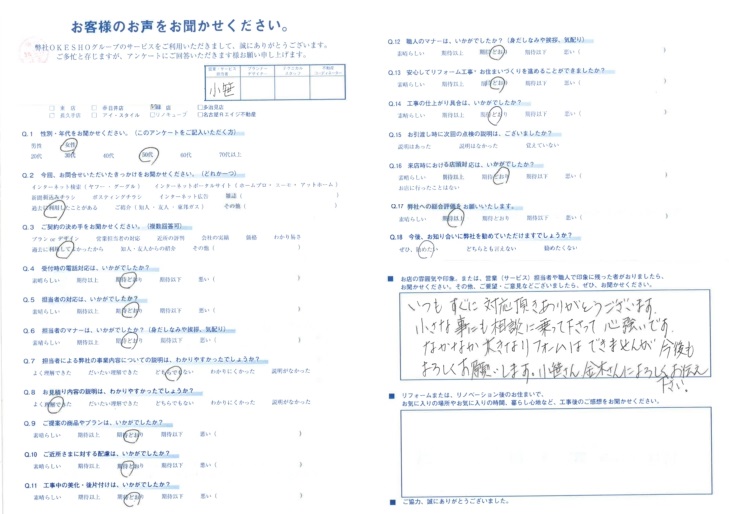 お客様のお声をお聞かせください。
弊社ＯＫＥＳＨＯグループのサービスをご利用いただきまして、誠にありがとうございます。
ご多忙と存じますが、アンケートにご回答いただきます様お願い申し上げます。
小笹
Q.1 性別・年代をお聞かせください。（このアンケートをご記入いただく方）
男性 女性
20代 30代 40代 50代 60代 70代以上
Q.2 今回、お問合せいただいたきっかけをお聞かせください。（どれか一つ）
インターネット検索（ヤフー・グーグル） インターネットポータルサイト（ホームプロ・スーモ・アットホーム）
新聞折込みチラシ ポスティングチラシ インターネット広告 雑誌（ ）
過去に利用したことがある ご紹介（知人・友人・東邦ガス） その他（ ）
Q.3 ご契約の決め手をお聞かせください。（複数回答可）
プラン or デザイン 営業担当者の対応 近所の評判 会社の実績 価格 わかり易さ
過去に利用してよかったから 知人・友人からの紹介 その他（ ）
Q.4 受付時の電話対応は、いかがでしたか？
素晴らしい 期待以上 期待どおり 期待以下 悪い（ ）
Q.5 担当者の対応は、いかがでしたか？
素晴らしい 期待以上 期待どおり 期待以下 悪い（ ）
Q.6 担当者のマナーは、いかがでしたか？（身だしなみや挨拶、気配り）
素晴らしい 期待以上 期待どおり 期待以下 悪い（ ）
Q.7 担当者による弊社の事業内容についての説明は、わかりやすかったでしょうか？
よく理解できた だいたい理解できた どちらでもない わかりにくかった 説明がなかった
Q.8 お見積り内容の説明は、わかりやすかったでしょうか？
よく理解できた だいたい理解できた どちらでもない わかりにくかった 説明がなかった
Q.9 ご提案の商品やプランは、いかがでしたか？
素晴らしい 期待以上 期待どおり 期待以下 悪い（ ）
Q.10 ご近所さまに対する配慮は、いかがでしたか？
素晴らしい 期待以上 期待どおり 期待以下 悪い（ ）
Q.11 工事中の美化・後片付けは、いかがでしたか？
素晴らしい 期待以上 期待どおり 期待以下 悪い（ ）
Q.12 職人のマナーは、いかがでしたか？（身だしなみや挨拶、気配り）
素晴らしい 期待以上 期待どおり 期待以下 悪い（ ）
Q.13 安心してリフォーム工事・お住まいづくりを進めることができましたか？
素晴らしい 期待以上 期待どおり 期待以下 悪い（ ）
Q.14 工事の仕上がり具合は、いかがでしたか？
素晴らしい 期待以上 期待どおり 期待以下 悪い（ ）
Q.15 お引渡し時に次回の点検の説明は、ございましたか？
説明はあった 説明はなかった 覚えていない
Q.16 来店時における店頭対応は、いかがでしたか？
素晴らしい 期待以上 期待どおり 期待以下 悪い（ ）
お店に行ったことはない
Q.17 弊社への総合評価をお願いいたします。
素晴らしい 期待以上 期待どおり 期待以下 悪い（ ）
Q.18 今後、お知り合いに弊社を勧めていただけますでしょうか？
ぜひ、勧めたい どちらとも言えない 勧めたくない
■ お店の雰囲気や印象、または、営業（サービス）担当者や職人で印象に残った者がおりましたら、
お聞かせください。その他、ご要望・ご意見などございましたら、ぜひ、お聞かせください。
いつも すぐに 対応頂きありがとうございます。
小さな事にも相談に乗って下さって 心強いです。
なかなか大きなリフォームは できませんが 今後も
よろしくお願いします。小笹さん 金木さんによろしくお伝え
下さい。
■ リフォームまたは、リノベーション後のお住まいで、
お気に入りの場所やお気に入りの時間、暮らし心地など、工事後のご感想をお聞かせください。
■ ご協力、誠にありがとうございました。